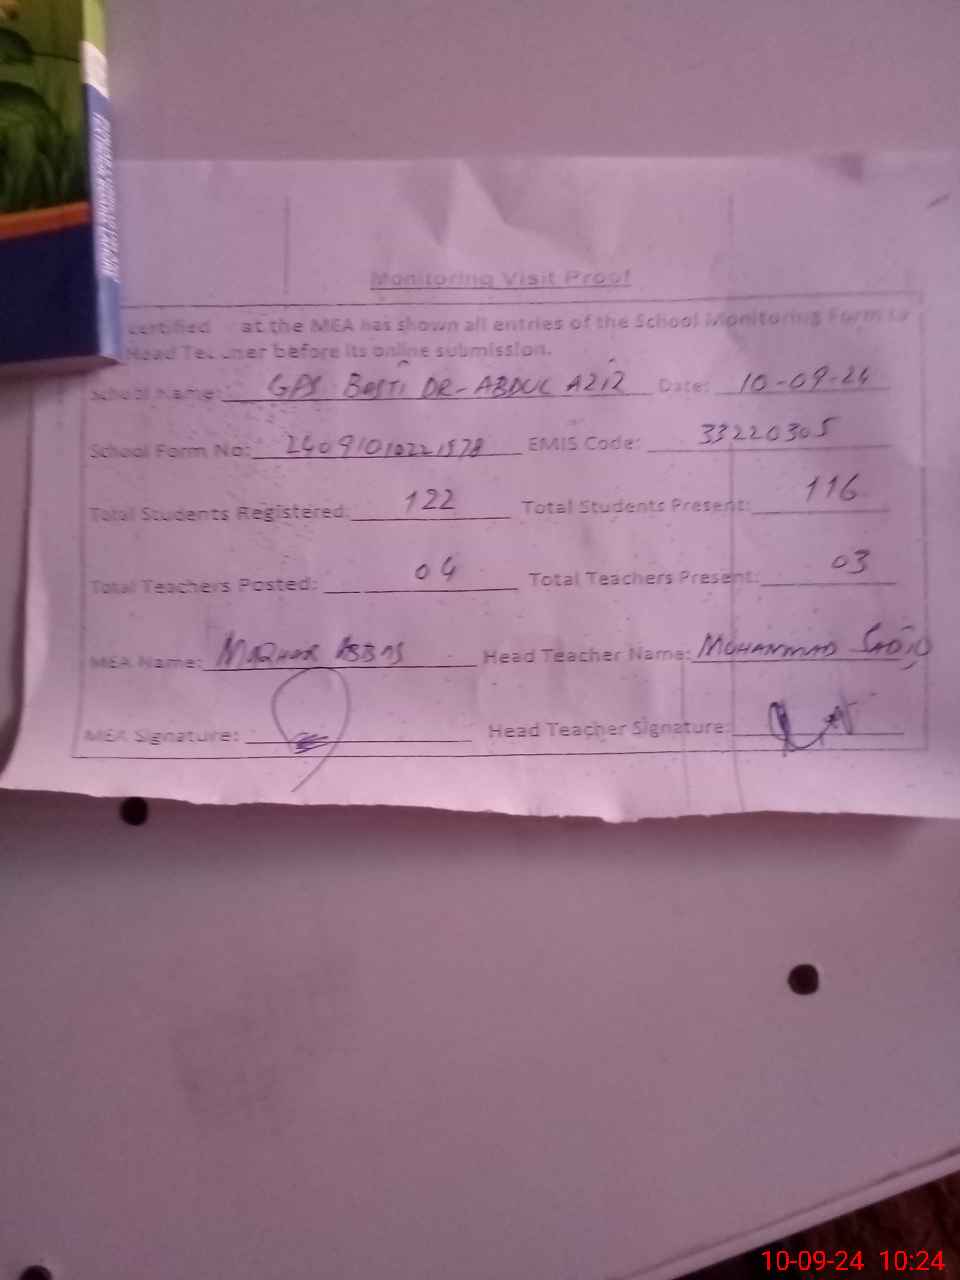 Monitoring Visit Proof
certified at the MEA has shown all entries of the School Monitoring Form to
Head Teacher before its online submission.
School Name: GPS BASTI DR-ABDUL AZIZ Date: 10-09-24
School Form No: EMIS Code: 33220305
Total Students Registered: 122 Total Students Present: 116
Total Teachers Posted: 04 Total Teachers Present: 03
MEA Name: MAZHAR ABBAS Head Teacher Name: MOHAMMAD SADIQ
MEA Signature: Head Teacher Signature:
10-09-24 10:24